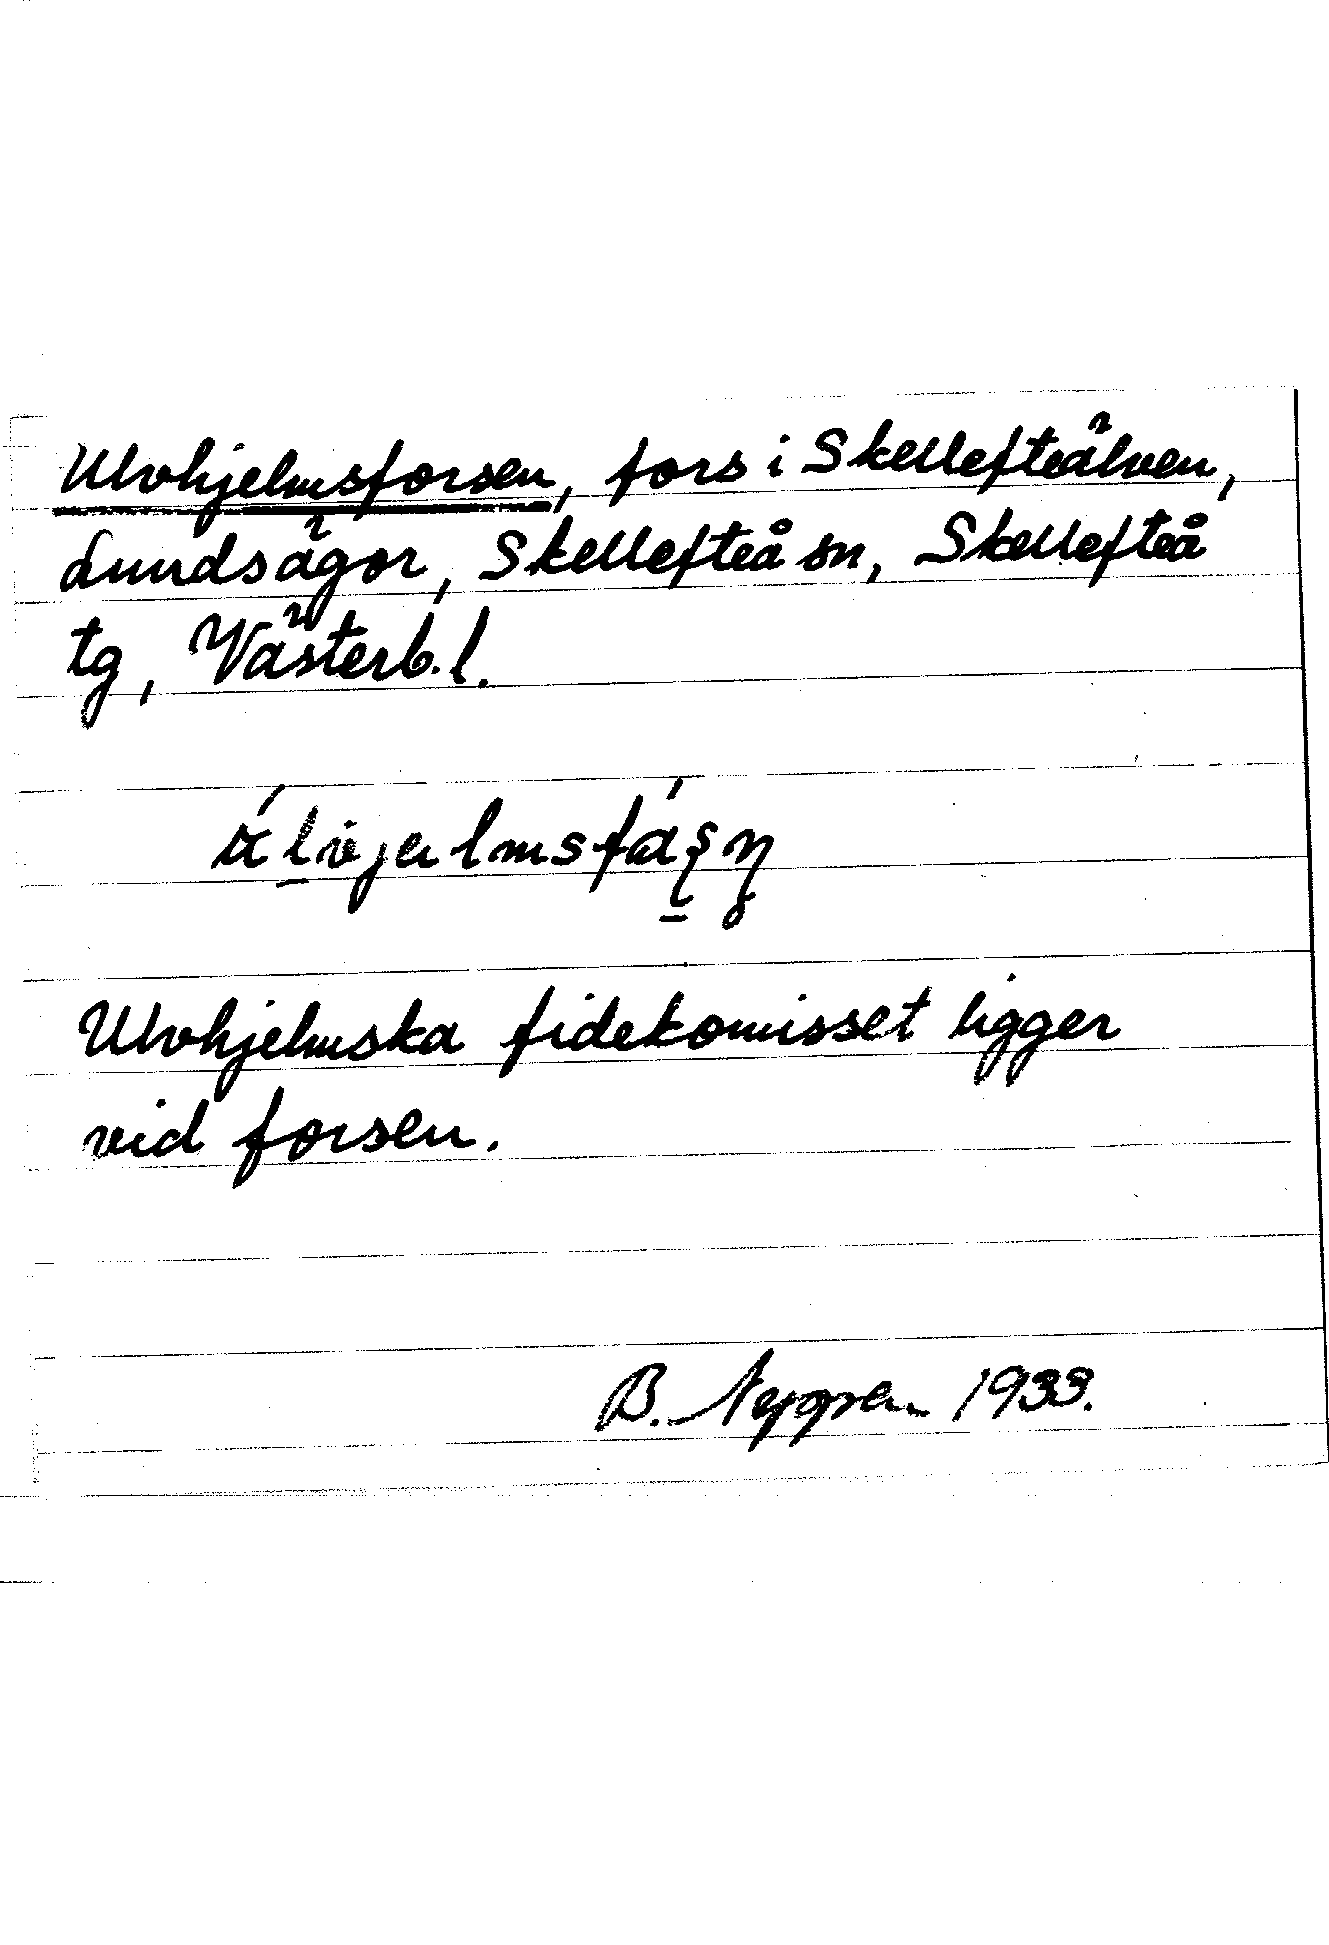 Ulvhjelmsforsen, fors i Skellefteälven,
Lundsägor, Skellefteå sn, Skellefteå
tg, Västerb. l.
Ulvhjelmska fidekomisset ligger
vid forsen.
B. Nygren 1933.